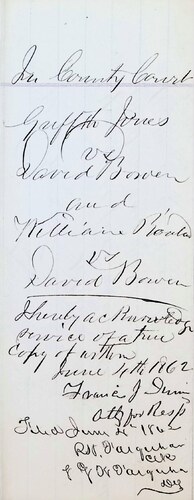 In County Court
Griffith Jones
vs
David Bowen
and
William
vs
David Bowen
I hereby acknowledge
service of a true
copy of
June 4th 1862
Francis J
atty for Resp
Filed June 4th 1862
R.W. Farquhar
Clk
J W Farquhar